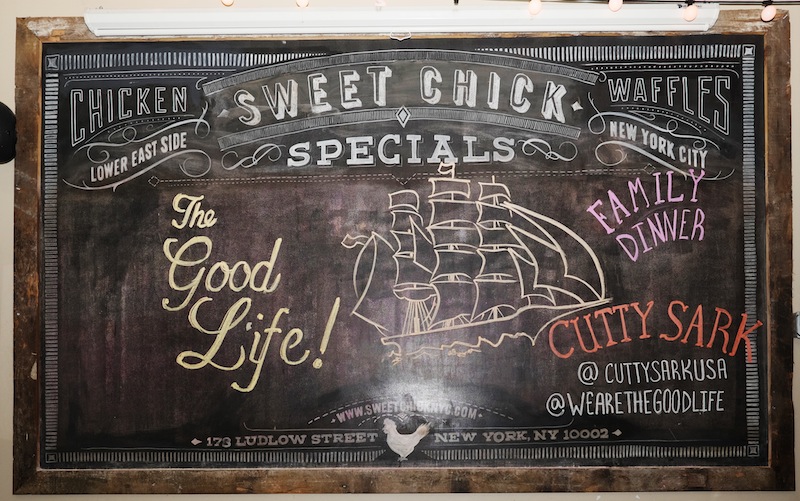 CHICKEN
LOWER EAST SIDE
SWEET CHICK
SPECIALS
WAFFLES
NEW YORK CITY
The
Good
Life!
FAMILY
DINNER
CUTTY SARK
@CUTTYSARKUSA
@WEARETHEGOODLIFE
WWW.SWEETCHICKNYC.COM
173 LUDLOW STREET NEW YORK, NY 10002